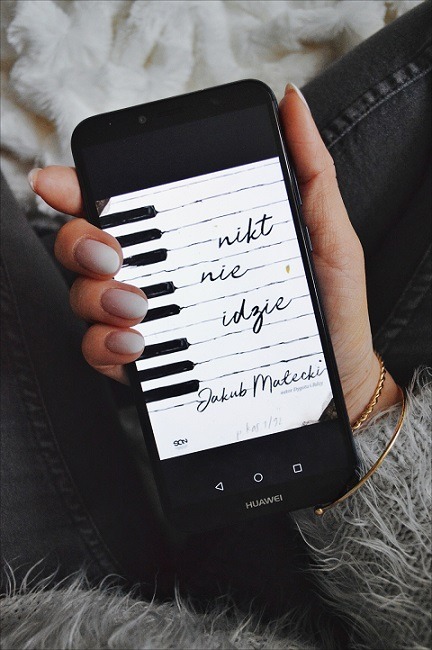 nikt
nie
idzie
Jakub Małecki
autor Dygotu i Rdzy
SQN
HUAWEI